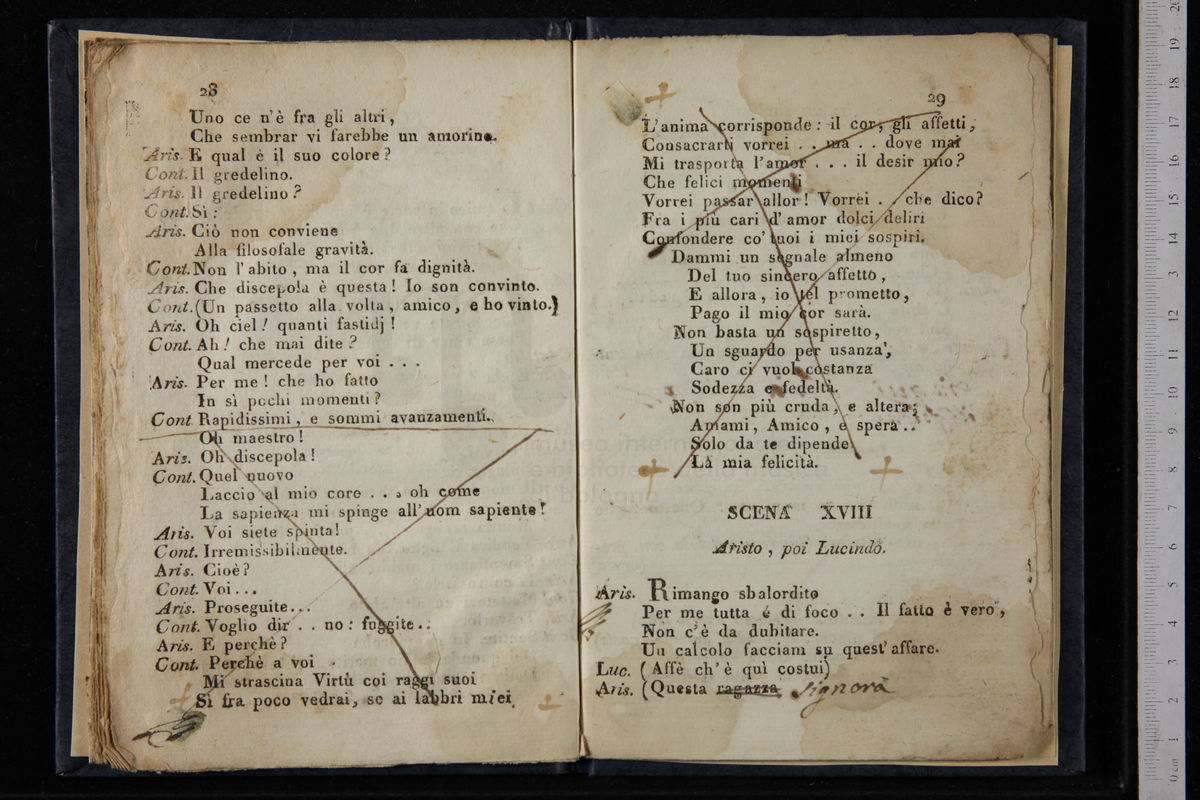 28
Uno ce n'è fra gli altri,
Che sembrar vi farebbe un amorino.
Aris. E qual è il suo colore?
Cont. Il gredelino.
Aris. Il gredelino?
Cont. Sì:
Aris. Ciò non conviene
Alla filosofale gravità.
Cont. Non l'abito, ma il cor fa dignità.
Aris. Che discepola è questa! Io son convinto.
Cont. (Un passetto alla volta, amico, e ho vinto.)
Aris. Oh ciel! quanti fastidj!
Cont. Ah! che mai dite?
Qual mercede per voi . . .
Aris. Per me! che ho fatto
In sì pochi momenti?
Cont. Rapidissimi, e sommi avanzamenti.
Oh maestro!
Aris. Oh discepola!
Cont. Quel nuovo
Laccio al mio core . . . oh come
La sapienza mi spinge all'uom sapiente!
Aris. Voi siete spinta!
Cont. Irremissibilmente.
Aris. Cioè?
Cont. Voi...
Aris. Proseguite...
Cont. Voglio dir . . no: fuggite..
Aris. E perchè?
Cont. Perchè a voi
Mi strascina Virtù coi raggi suoi
Sì fra poco vedrai, se ai labbri miei
29
L'anima corrisponde: il cor, gli affetti,
Consacrarti vorrei . . ma . . dove mai
Mi trasporta l'amor . . . il desir mio?
Che felici momenti
Vorrei passar allor! Vorrei . . che dico?
Fra i più cari d'amor dolci deliri
Confondere co' tuoi i miei sospiri.
Dammi un segnale almeno
Del tuo sincero affetto,
E allora, io tel prometto,
Pago il mio cor sarà.
Non basta un sospiretto,
Un sguardo per usanza,
Caro ci vuol costanza
Sodezza e fedeltà.
Non son più cruda, e altera;
Amami, Amico, e spera..
Solo da te dipende
La mia felicità.
SCENA XVIII
Aristo, poi Lucindo.
Aris. Rimango sbalordito
Per me tutta è di foco . . Il fatto è vero,
Non c'è da dubitare.
Un calcolo facciam su quest'affare.
Luc. (Affè ch'è quì costui)
Aris. (Questa ragazza signora